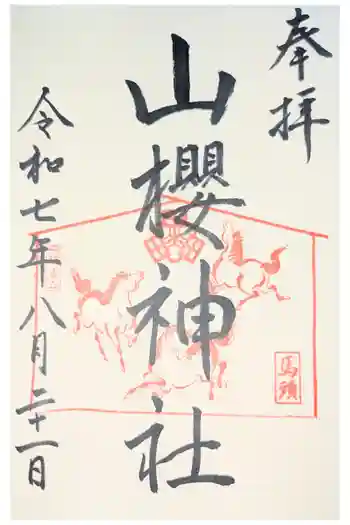 奉拝
山櫻神社
令和七年八月二十一日
馬頭